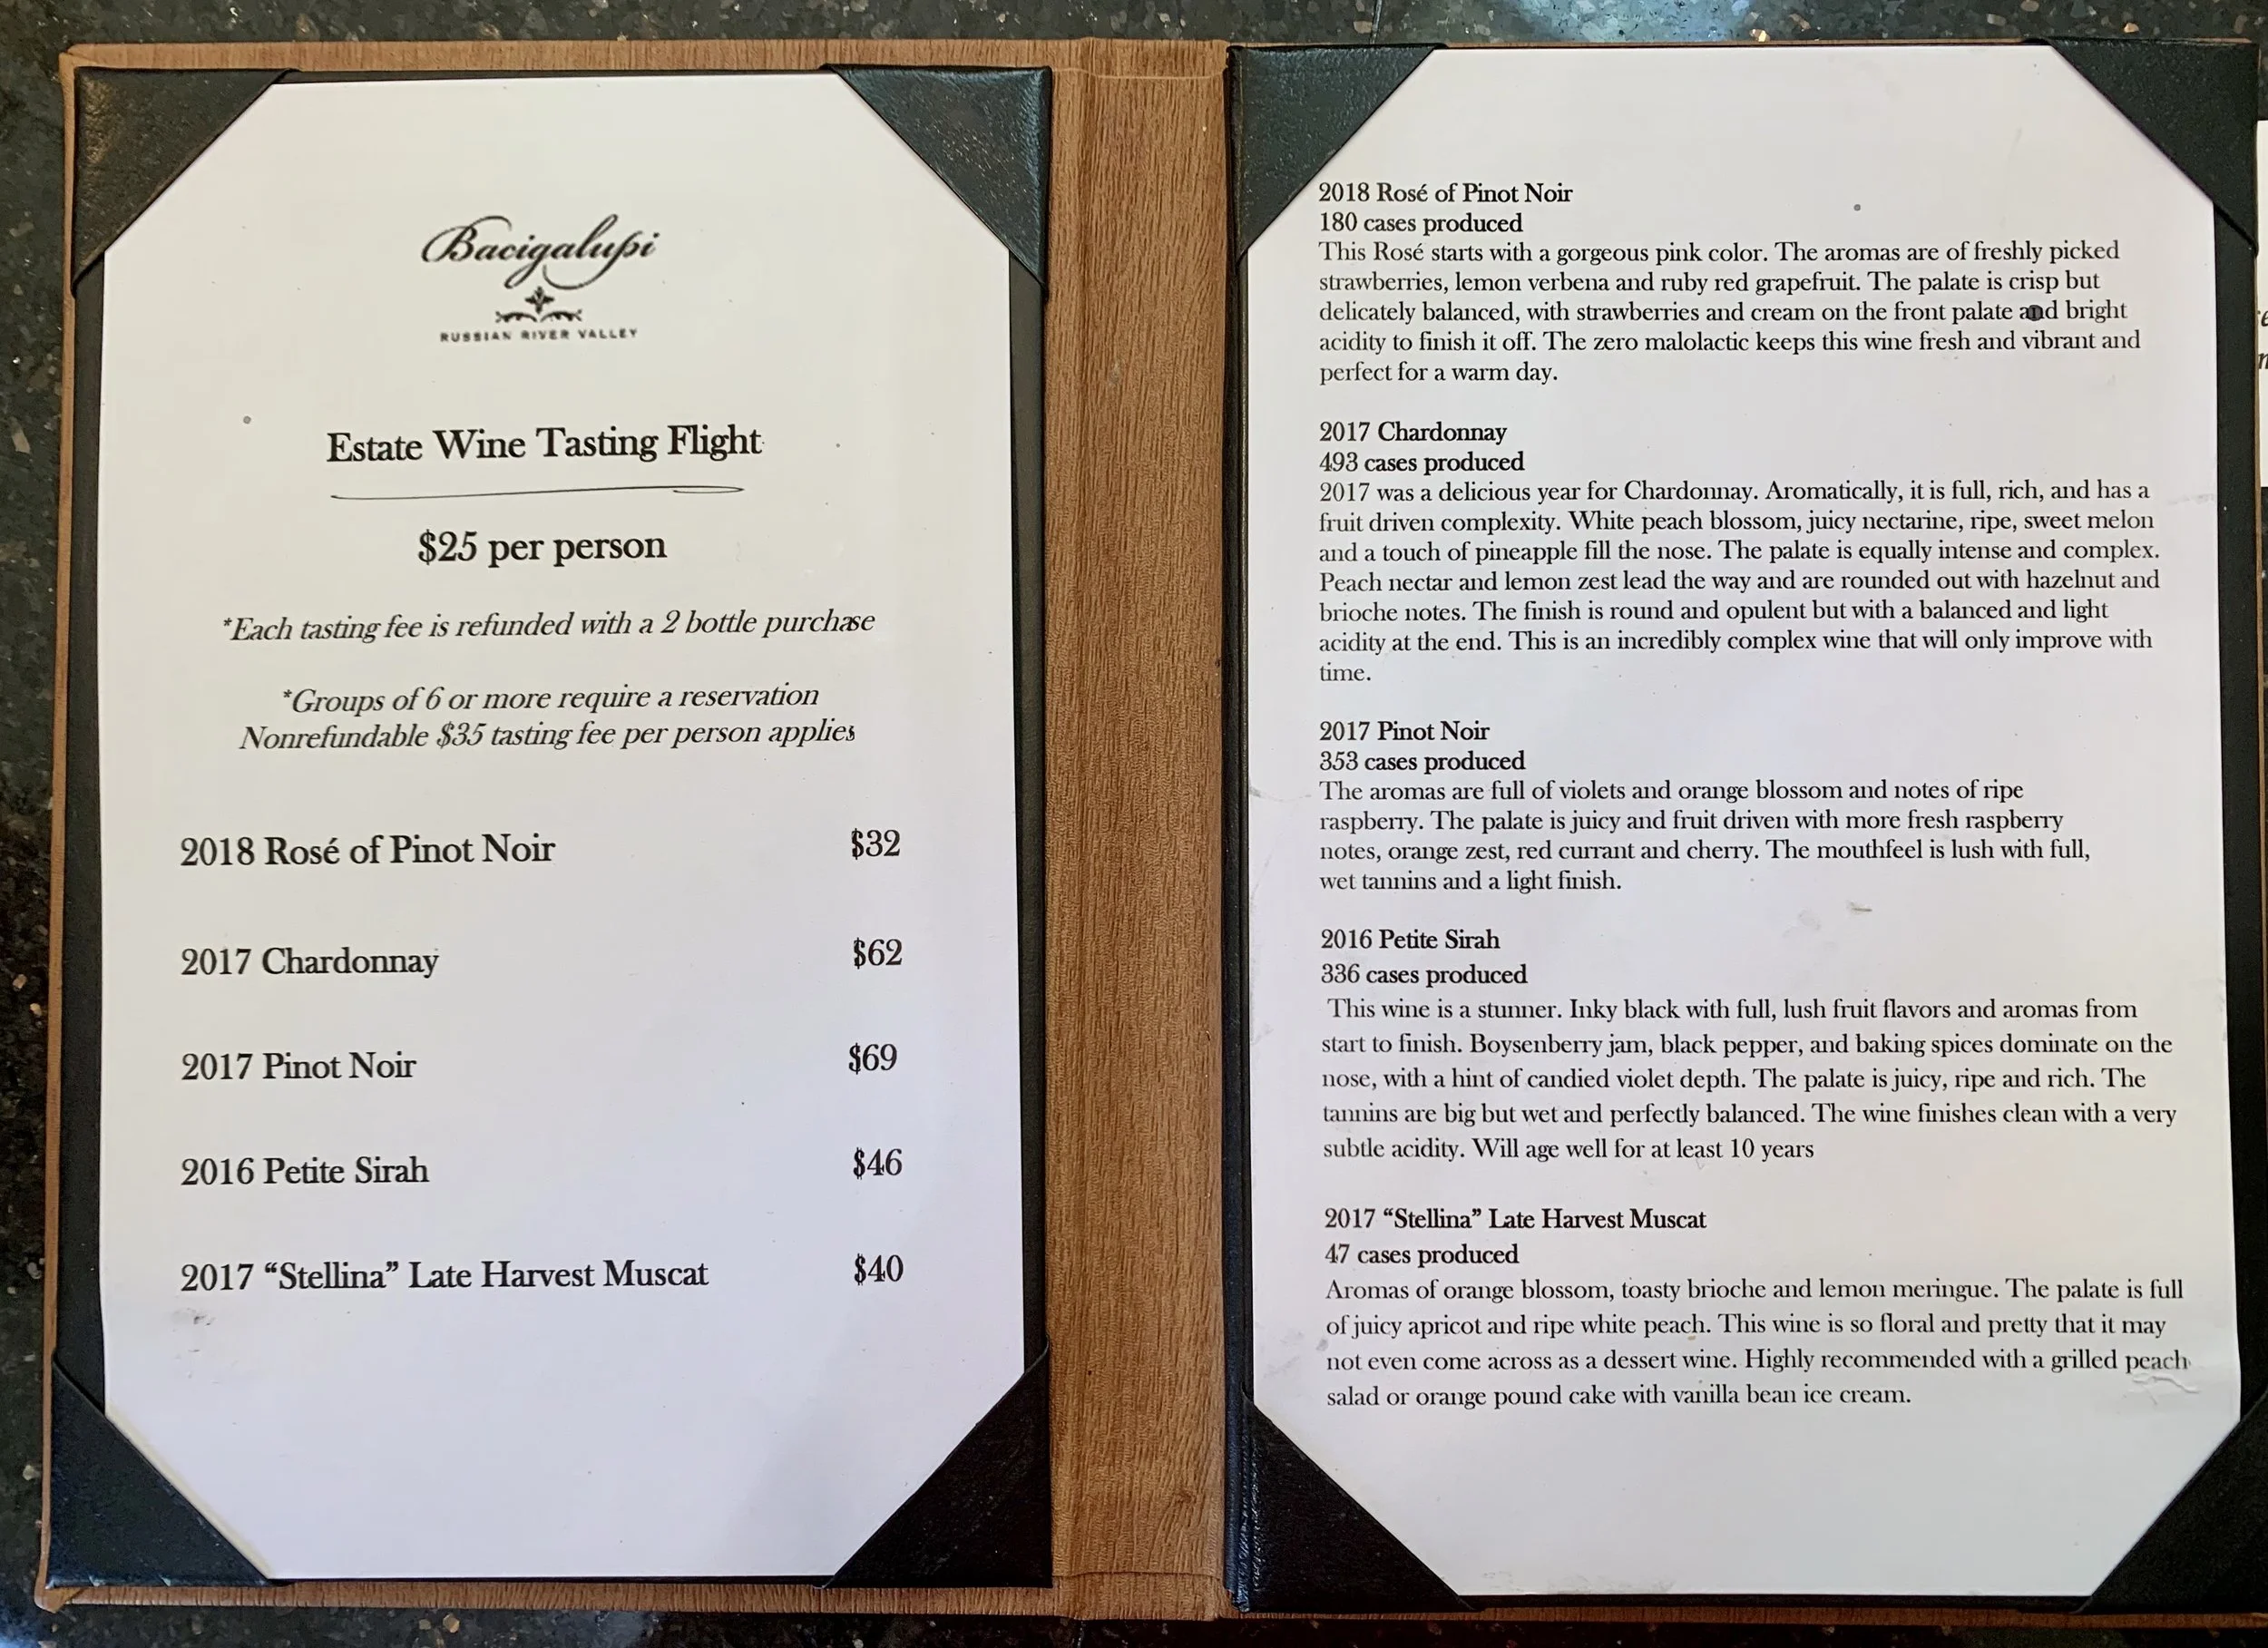 Bacigalupi
RUSSIAN RIVER VALLEY
Estate Wine Tasting Flight
$25 per person
*Each tasting fee is refunded with a 2 bottle purchase
*Groups of 6 or more require a reservation
Nonrefundable $35 tasting fee per person applies
2018 Rosé of Pinot Noir $32
2017 Chardonnay $62
2017 Pinot Noir $69
2016 Petite Sirah $46
2017 “Stellina” Late Harvest Muscat $40
2018 Rosé of Pinot Noir
180 cases produced
This Rosé starts with a gorgeous pink color. The aromas are of freshly picked
strawberries, lemon verbena and ruby red grapefruit. The palate is crisp but
delicately balanced, with strawberries and cream on the front palate and bright
acidity to finish it off. The zero malolactic keeps this wine fresh and vibrant and
perfect for a warm day.
2017 Chardonnay
493 cases produced
2017 was a delicious year for Chardonnay. Aromatically, it is full, rich, and has a
fruit driven complexity. White peach blossom, juicy nectarine, ripe, sweet melon
and a touch of pineapple fill the nose. The palate is equally intense and complex.
Peach nectar and lemon zest lead the way and are rounded out with hazelnut and
brioche notes. The finish is round and opulent but with a balanced and light
acidity at the end. This is an incredibly complex wine that will only improve with
time.
2017 Pinot Noir
353 cases produced
The aromas are full of violets and orange blossom and notes of ripe
raspberry. The palate is juicy and fruit driven with more fresh raspberry
notes, orange zest, red currant and cherry. The mouthfeel is lush with full,
wet tannins and a light finish.
2016 Petite Sirah
336 cases produced
This wine is a stunner. Inky black with full, lush fruit flavors and aromas from
start to finish. Boysenberry jam, black pepper, and baking spices dominate on the
nose, with a hint of candied violet depth. The palate is juicy, ripe and rich. The
tannins are big but wet and perfectly balanced. The wine finishes clean with a very
subtle acidity. Will age well for at least 10 years
2017 “Stellina” Late Harvest Muscat
47 cases produced
Aromas of orange blossom, toasty brioche and lemon meringue. The palate is full
of juicy apricot and ripe white peach. This wine is so floral and pretty that it may
not even come across as a dessert wine. Highly recommended with a grilled peach
salad or orange pound cake with vanilla bean ice cream.